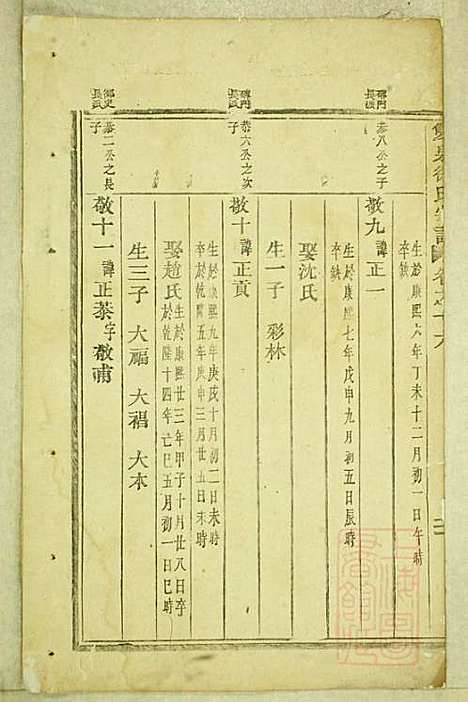 徐氏宗譜 卷之十六
生於康熙六年丁未十二月初一日午時
卒缺
碑門長派
恭八公之子
敬九 諱正一
生於康熙七年戊申九月初五日辰時
卒缺
娶沈氏
生一子 彩林
碑門長派
恭六公之次子
敬十 諱正貢
生於康熙九年庚戌十月初二日未時
卒於乾隆五年庚申三月廿五日未時
娶趙氏 生於康熙廿三年甲子十月廿八日卒
於乾隆十四年亡巳五月初一日巳時
生三子 大福 大禎 大本
御史長派
恭二公之長子
敬十一 諱正恭字敬甫